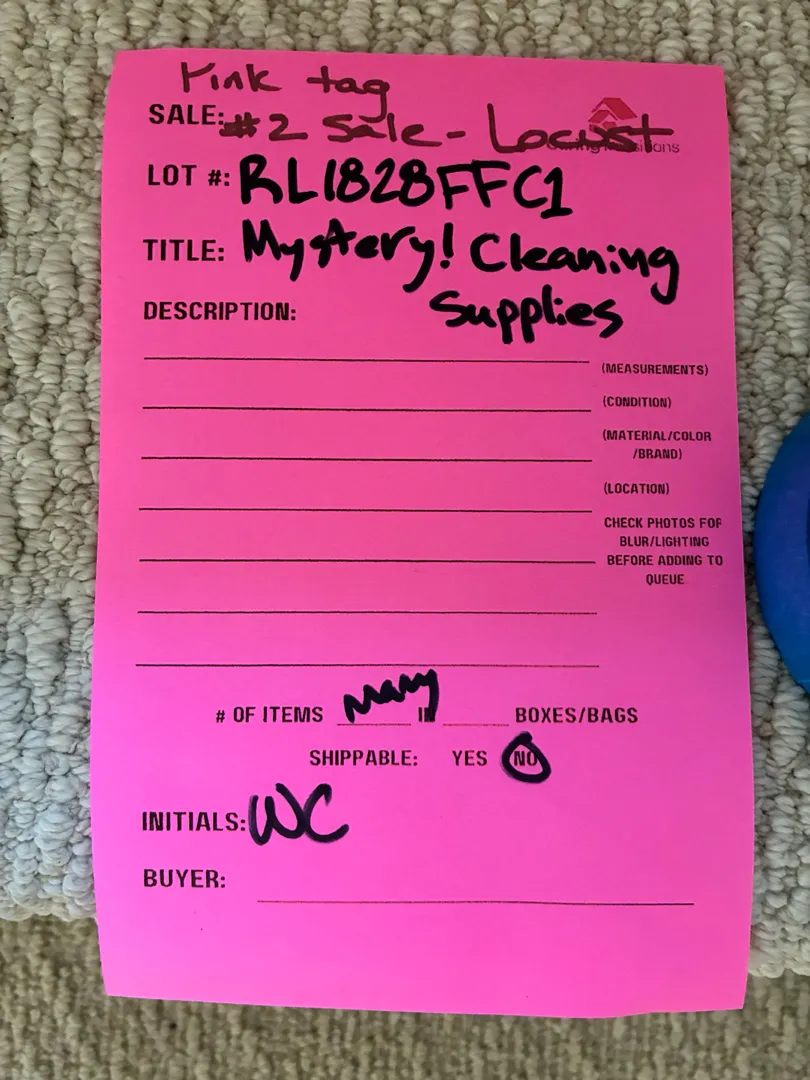 Pink tag
SALE: #2 Sale - Locust
LOT #: RL1828FFC1
TITLE: Mystery! Cleaning
Supplies
DESCRIPTION:
(MEASUREMENTS)
(CONDITION)
(MATERIAL/COLOR
/BRAND)
(LOCATION)
CHECK PHOTOS FOR
BLUR/LIGHTING
BEFORE ADDING TO
QUEUE
# OF ITEMS many IN BOXES/BAGS
SHIPPABLE: YES NO
INITIALS: WC
BUYER: